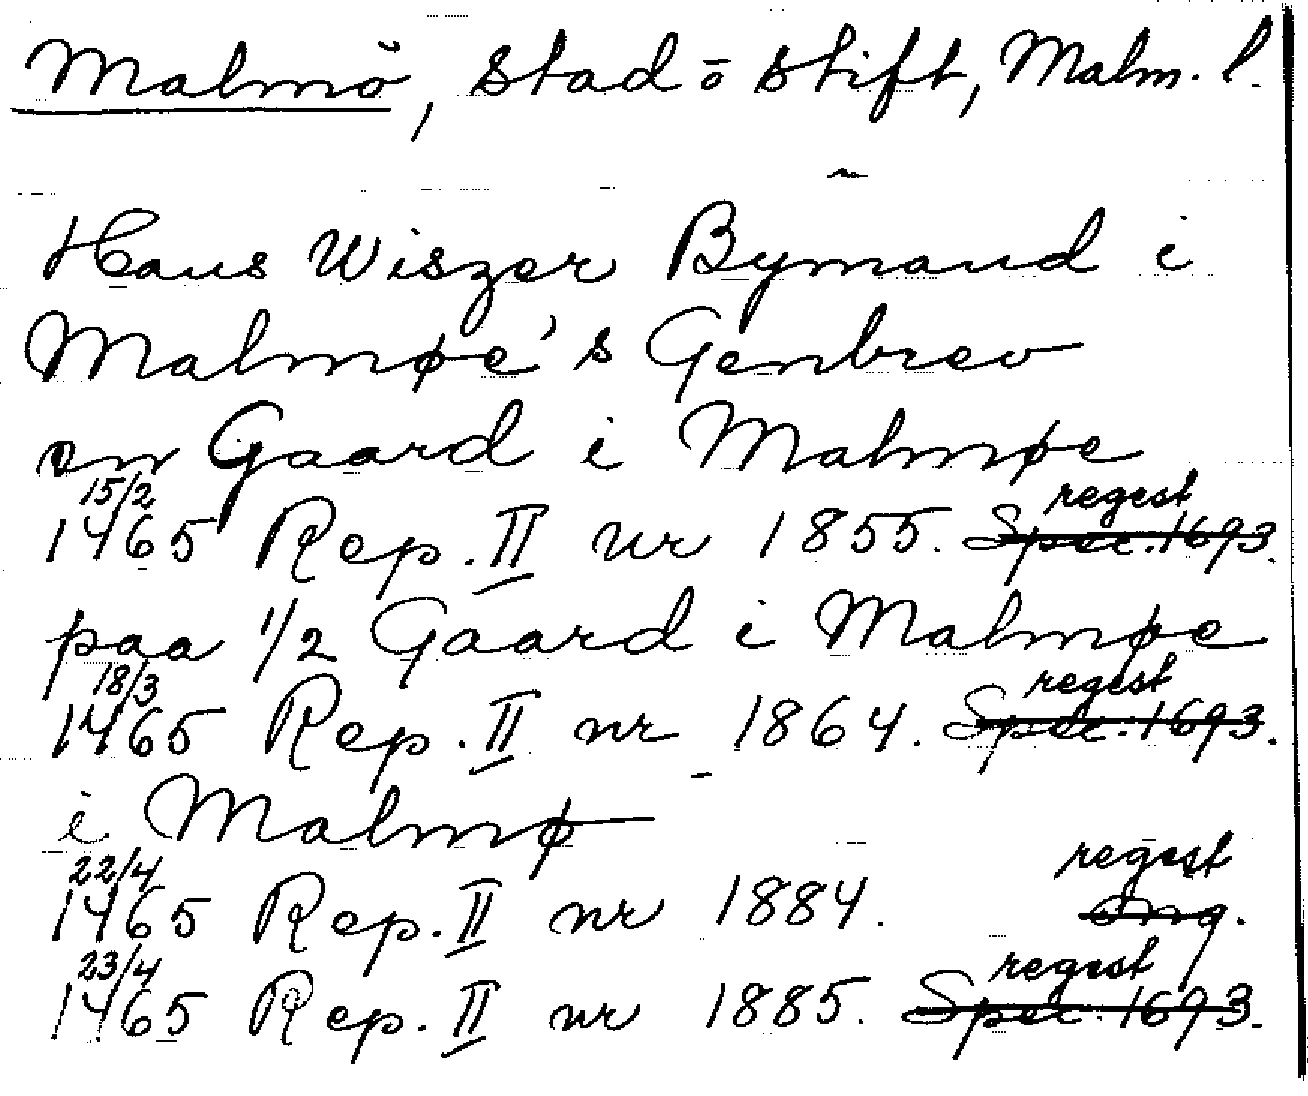 Malmö, Stad o stift, Malm. l.
Hans Wiszer Bymand i
Malmøe's Genbrev
om Gaard i Malmøe
15/2 regest
1465 Rep. II nr 1855. Spec. 1693.
paa 1/2 Gaard i Malmøe
18/3 regest
1465 Rep. II nr 1864. Spec. 1693.
i Malmø
22/4 regest
1465 Rep. II nr 1884. Orig.
23/4 regest
1465 Rep. II nr 1885. Spec. 1693.